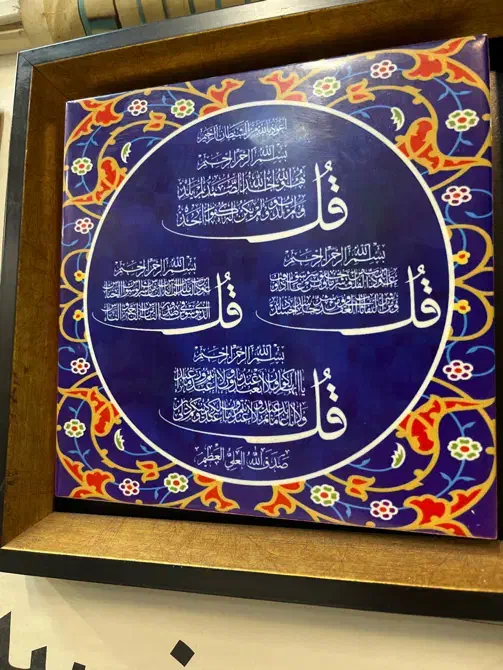 أعوذ بالله من الشيطان الرجيم
بسم الله الرحمن الرحيم
قل هو الله أحد الله الصمد لم يلد
ولم يولد ولم يكن له كفوا أحد
بسم الله الرحمن الرحيم
قل أعوذ برب الفلق من شر ما خلق ومن شر غاسق إذا وقب
ومن شر النفاثات في العقد ومن شر حاسد إذا حسد
بسم الله الرحمن الرحيم
قل أعوذ برب الناس ملك الناس إله الناس من شر الوسواس الخناس
الذي يوسوس في صدور الناس من الجنة والناس
بسم الله الرحمن الرحيم
قل يا أيها الكافرون لا أعبد ما تعبدون ولا أنتم عابدون ما أعبد
ولا أنا عابد ما عبدتم ولا أنتم عابدون ما أعبد لكم دينكم ولي دين
صدق الله العلي العظيم